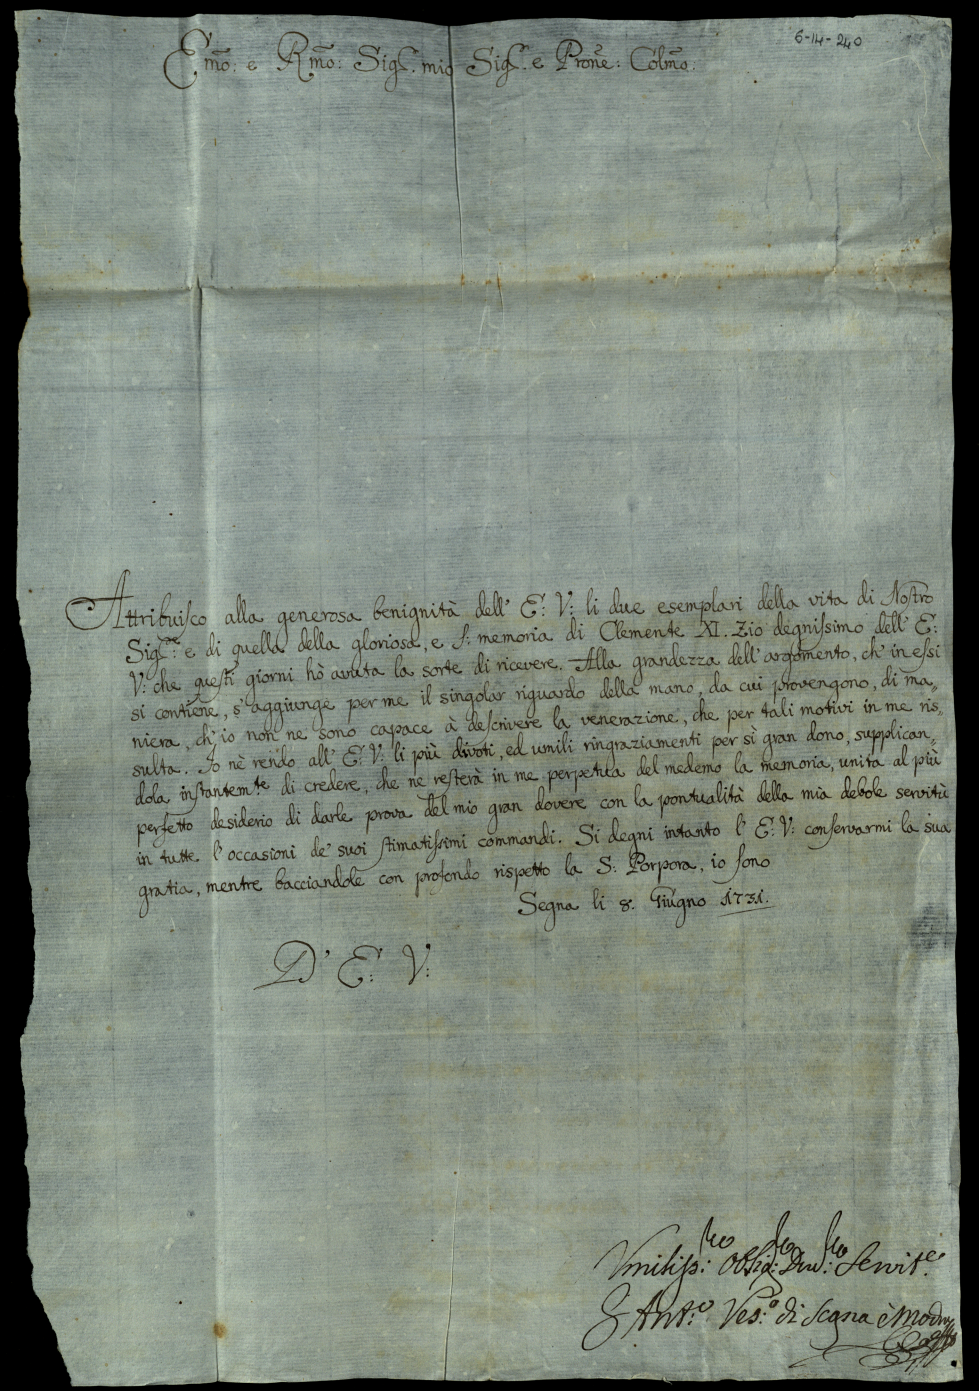 6-14-240
Em̃o: e Rm̃o: Sig.r mio Sig.r e Prone: Colmo:
Attribuisco alla generosa benignità dell' E: V: li due esemplari della vita di Nostro
Sig.re: e di quella della gloriosa, e S: memoria di Clemente XI. Zio degnissimo dell' E:
V: che questi giorni hò avuta la sorte di ricevere. Alla grandezza dell' argomento, ch' in essi
si contiene, s' aggiunge per me il singolar riguardo della mano, da cui provengono, di ma„
niera, ch' io non ne sono capace à descrivere la venerazione, che per tali motivi in me ris„
sulta. Io nè rendo all' E: V: li più divoti, ed umili ringraziamenti per sì gran dono, supplican„
dola instantemte di credere, che ne resterà in me perpetua del medemo la memoria, unita al più
perfetto desiderio di darle prova del mio gran dovere con la pontualità della mia debole servitù
in tutte l' occasioni de' suoi stimatissimi commandi. Si degni intanto l' E: V: conservarmi la sua
gratia, mentre bacciandole con profondo rispetto la S: Porpora, io sono
Segna li 8. Giugno 1731.
D' E: V:
Vmiliss:mo Obblig:mo Div:mo Servit.e
G Ant:o Ves:o di Segna è Modru